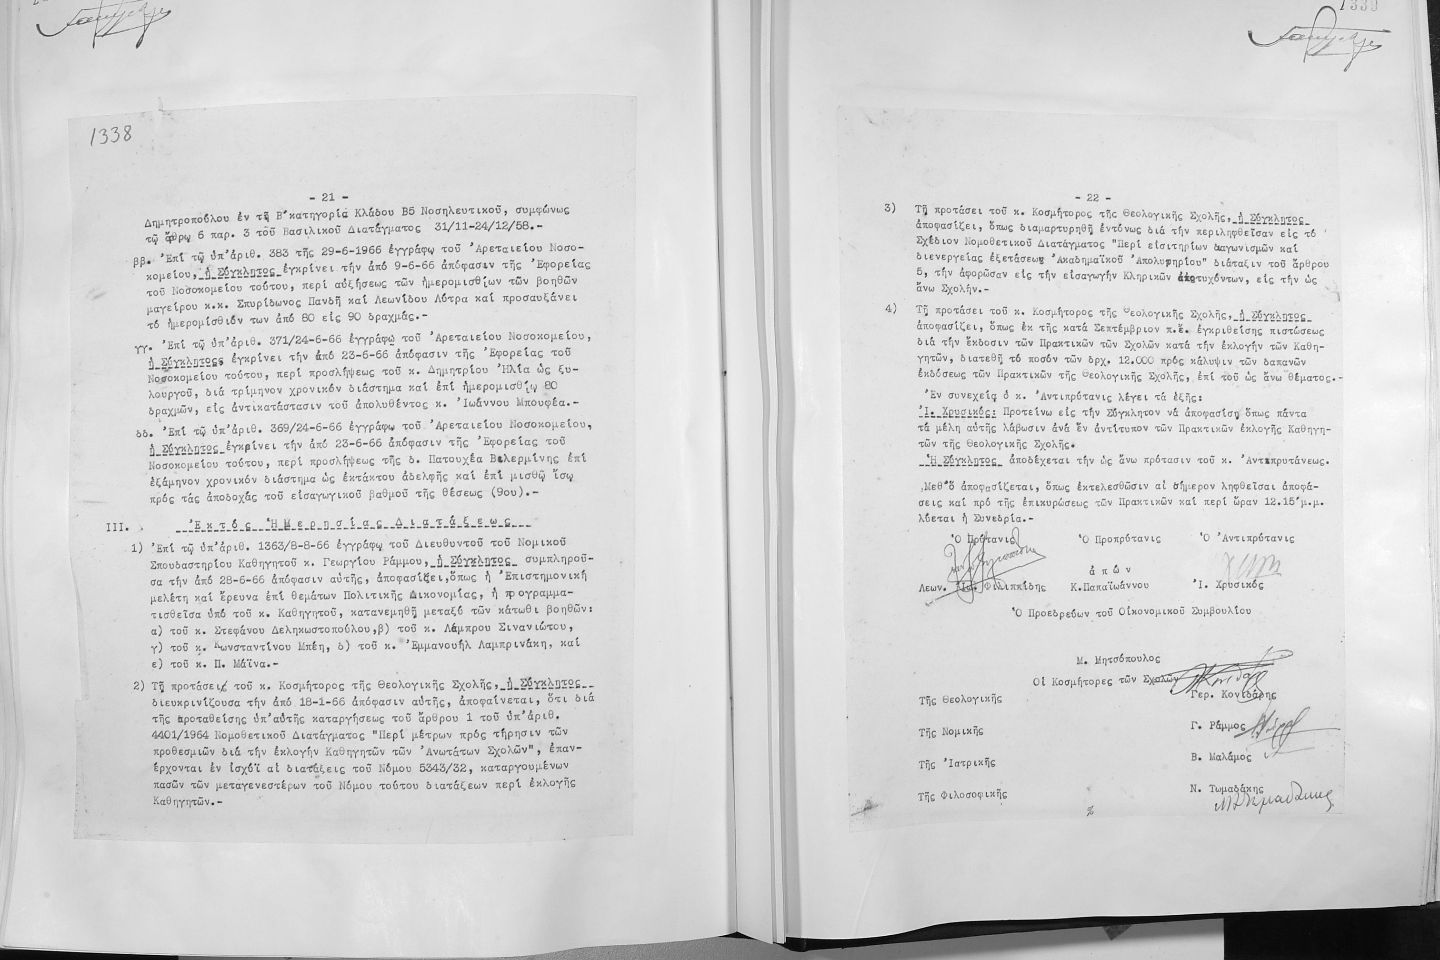 1338
- 21 -
Δημητροπούλου ἐν τῇ Β΄κατηγορίᾳ Κλάδου Β5 Νοσηλευτικοῦ, συμφώνως
τῷ ἄρθρῳ 6 παρ. 3 τοῦ Βασιλικοῦ Διατάγματος 31/11-24/12/58.-
ββ. Ἐπί τῷ ὑπ'ἀριθ. 383 τῆς 29-6-1966 ἐγγράφῳ τοῦ Ἀρεταιείου Νοσο-
κομείου, ἡ Σύγκλητος ἐγκρίνει τήν ἀπό 9-6-66 ἀπόφασιν τῆς Ἐφορείας
τοῦ Νοσοκομείου τούτου, περί αὐξήσεως τῶν ἡμερομισθίων τῶν βοηθῶν
μαγείρου κ.κ. Σπυρίδωνος Πανδῆ καί Λεωνίδου Λύτρα καί προσαυξάνει
τό ἡμερομίσθιόν των ἀπό 80 εἰς 90 δραχμάς.-
γγ. Ἐπί τῷ ὑπ'ἀριθ. 371/24-6-66 ἐγγράφῳ τοῦ Ἀρεταιείου Νοσοκομείου,
ἡ Σύγκλητος ἐγκρίνει τήν ἀπό 23-6-66 ἀπόφασιν τῆς Ἐφορείας τοῦ
Νοσοκομείου τούτου, περί προσλήψεως τοῦ κ. Δημητρίου Ἠλία ὡς ξυ-
λουργοῦ, διά τρίμηνον χρονικόν διάστημα καί ἐπί ἡμερομισθίῳ 80
δραχμῶν, εἰς ἀντικατάστασιν τοῦ ἀπολυθέντος κ. Ἰωάννου Μπουφέα.-
δδ. Ἐπί τῷ ὑπ'ἀριθ. 369/24-6-66 ἐγγράφῳ τοῦ Ἀρεταιείου Νοσοκομείου,
ἡ Σύγκλητος ἐγκρίνει τήν ἀπό 23-6-66 ἀπόφασιν τῆς Ἐφορείας τοῦ
Νοσοκομείου τούτου, περί προσλήψεως τῆς δ. Πατουχέα Βελερμίνης ἐπί
ἑξάμηνον χρονικόν διάστημα ὡς ἐκτάκτου ἀδελφῆς καί ἐπί μισθῷ ἴσῳ
πρός τάς ἀποδοχάς τοῦ εἰσαγωγικοῦ βαθμοῦ τῆς θέσεως (9ου).-
III. Ἐκτός Ἡμερησίας Διατάξεως
1) Ἐπί τῷ ὑπ'ἀριθ. 1363/8-8-66 ἐγγράφῳ τοῦ Διευθυντοῦ τοῦ Νομικοῦ
Σπουδαστηρίου Καθηγητοῦ κ. Γεωργίου Ράμμου, ἡ Σύγκλητος συμπληροῦ-
σα τήν ἀπό 28-6-66 ἀπόφασιν αὐτῆς, ἀποφασίζει,ὅπως ἡ Ἐπιστημονική
μελέτη καί ἔρευνα ἐπί θεμάτων Πολιτικῆς Δικονομίας, ἡ προγραμμα-
τισθεῖσα ὑπό τοῦ κ. Καθηγητοῦ, κατανεμηθῇ μεταξύ τῶν κάτωθι βοηθῶν:
α) τοῦ κ. Στεφάνου Δεληκωστοπούλου,β) τοῦ κ. Λάμπρου Σινανιώτου,
γ) τοῦ κ. Κωνσταντίνου Μπέη, δ) τοῦ κ. Ἐμμανουήλ Λαμπρινάκη, καί
ε) τοῦ κ. Π. Μάϊνα.-
2) Τῇ προτάσει τοῦ κ. Κοσμήτορος τῆς Θεολογικῆς Σχολῆς, ἡ Σύγκλητος
διευκρινίζουσα τήν ἀπό 18-1-66 ἀπόφασιν αὐτῆς, ἀποφαίνεται, ὅτι διά
τῆς προταθείσης ὑπ'αὐτῆς καταργήσεως τοῦ ἄρθρου 1 τοῦ ὑπ'ἀριθ.
4401/1964 Νομοθετικοῦ Διατάγματος "Περί μέτρων πρός τήρησιν τῶν
προθεσμιῶν διά τήν ἐκλογήν Καθηγητῶν τῶν Ἀνωτάτων Σχολῶν", ἐπαν-
έρχονται ἐν ἰσχύϊ αἱ διατάξεις τοῦ Νόμου 5343/32, καταργουμένων
πασῶν τῶν μεταγενεστέρων τοῦ Νόμου τούτου διατάξεων περί ἐκλογῆς
Καθηγητῶν.-
1339
- 22 -
3) Τῇ προτάσει τοῦ κ. Κοσμήτορος τῆς Θεολογικῆς Σχολῆς, ἡ Σύγκλητος
ἀποφασίζει, ὅπως διαμαρτυρηθῇ ἐντόνως διά τήν περιληφθεῖσαν εἰς τό
Σχέδιον Νομοθετικοῦ Διατάγματος "Περί εἰσιτηρίων διαγωνισμῶν καί
διενεργείας ἐξετάσεως Ἀκαδημαϊκοῦ Ἀπολυτηρίου" διάταξιν τοῦ ἄρθρου
5, τήν ἀφορῶσαν εἰς τήν εἰσαγωγήν Κληρικῶν ἀποτυχόντων, εἰς τήν ὡς
ἄνω Σχολήν.-
4) Τῇ προτάσει τοῦ κ. Κοσμήτορος τῆς Θεολογικῆς Σχολῆς, ἡ Σύγκλητος
ἀποφασίζει, ὅπως ἐκ τῆς κατά Σεπτέμβριον π.ἔ. ἐγκριθείσης πιστώσεως
διά τήν ἔκδοσιν τῶν Πρακτικῶν τῶν Σχολῶν κατά τήν ἐκλογήν τῶν Καθη-
γητῶν, διατεθῇ τό ποσόν τῶν δρχ. 12.000 πρός κάλυψιν τῶν δαπανῶν
ἐκδόσεως τῶν Πρακτικῶν τῆς Θεολογικῆς Σχολῆς, ἐπί τοῦ ὡς ἄνω θέματος.-
Ἐν συνεχείᾳ ὁ κ. Ἀντιπρύτανις λέγει τά ἑξῆς:
Ἰ. Χρυσικός: Προτείνω εἰς τήν Σύγκλητον νά ἀποφασίσῃ ὅπως πάντα
τά μέλη αὐτῆς λάβωσιν ἀνά ἕν ἀντίτυπον τῶν Πρακτικῶν ἐκλογῆς Καθηγη-
τῶν τῆς Θεολογικῆς Σχολῆς.
Ἡ Σύγκλητος ἀποδέχεται τήν ὡς ἄνω πρότασιν τοῦ κ. Ἀντιπρυτάνεως.
Μεθ'ὅ ἀποφασίζεται, ὅπως ἐκτελεσθῶσιν αἱ σήμερον ληφθεῖσαι ἀποφά-
σεις καί πρό τῆς ἐπικυρώσεως τῶν Πρακτικῶν καί περί ὥραν 12.15΄μ.μ.
λύεται ἡ Συνεδρία.-
Ὁ Πρύτανις Ὁ Προπρύτανις Ὁ Ἀντιπρύτανις
ἀπών
Λεων. Ἰω. Φιλιππίδης Κ.Παπαϊωάννου Ἰ. Χρυσικός
Ὁ Προεδρεύων τοῦ Οἰκονομικοῦ Συμβουλίου
Μ. Μητσόπουλος
Οἱ Κοσμήτορες τῶν Σχολῶν
Τῆς Θεολογικῆς Γερ. Κονιδάρης
Τῆς Νομικῆς Γ. Ράμμος
Τῆς Ἰατρικῆς Β. Μαλάμος
Τῆς Φιλοσοφικῆς Ν. Τωμαδάκης